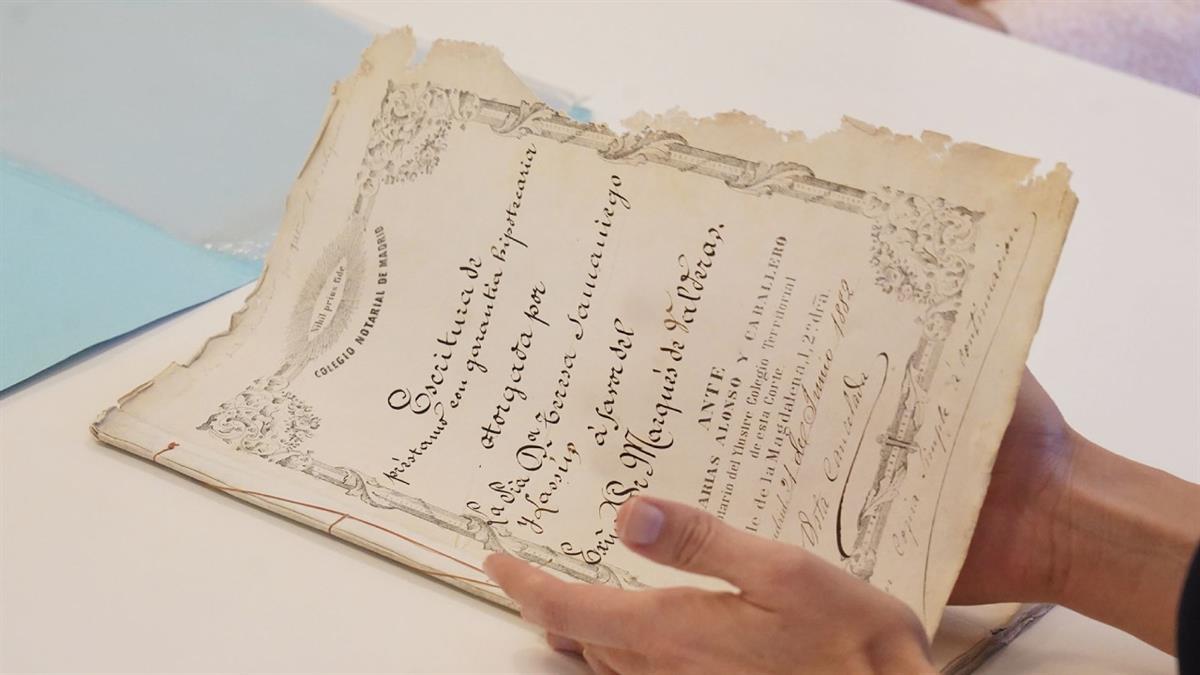 Nihil prius fide
COLEGIO NOTARIAL DE MADRID
Escritura de
préstamo con garantía hipotecaria
otorgada por
La Sra Da Teresa Samaniego
y Lassús,
á favor del
Excmo Sr Marqués de Valderas.
ANTE
ARIAS ALONSO Y CABALLERO
nario del Yltustre Colegio Territorial
de esta Corte
lle de la Magdalena, 1, 2º dra
21 de Junio 1882
Copia simple á continuacion